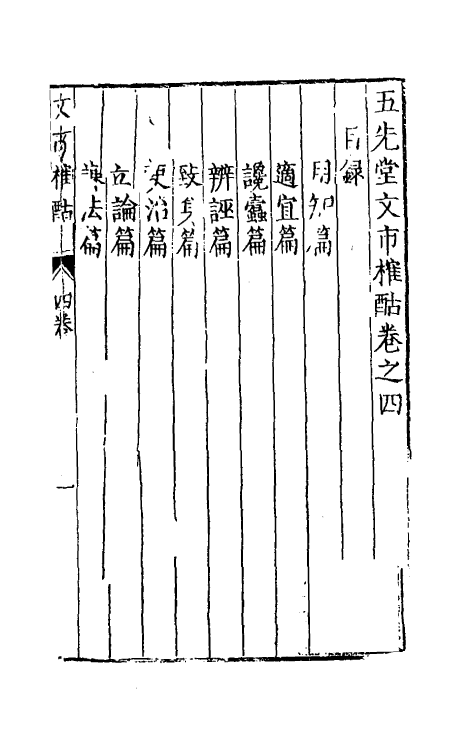 五先堂文市榷酤卷之四
目録
用知篇
適宜篇
讒蠹篇
辨誣篇
致其篇
更治篇
立論篇
法篇
文市榷酤
四卷
一